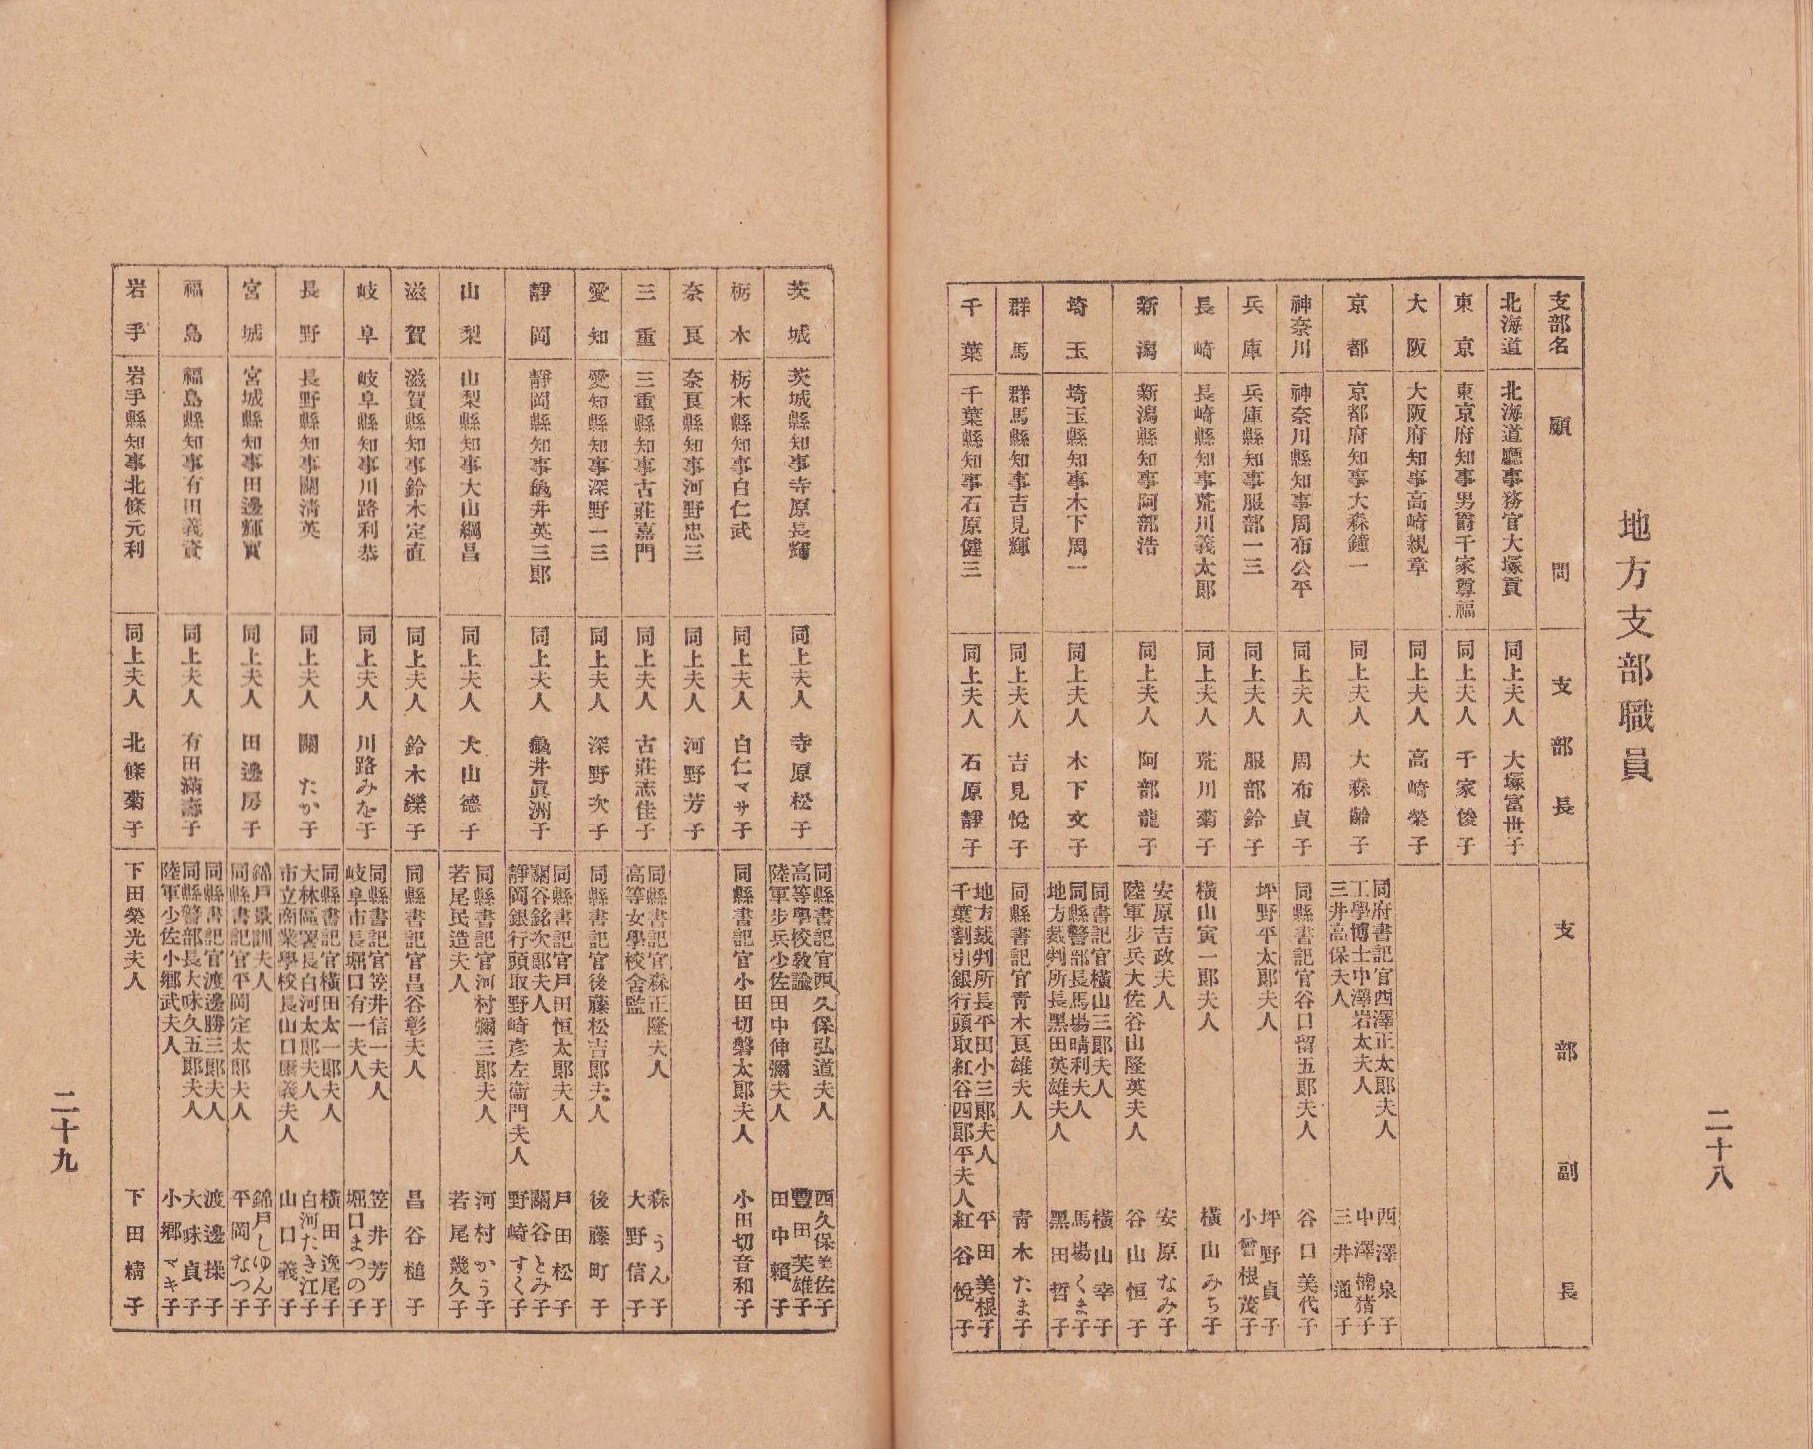 地方支部職員
二十八
支部名 顧問 支部長 支部副長
北海道 北海道廳事務官大塚貢 同上夫人 大塚富世子
東京 東京府知事男爵千家尊福 同上夫人 千家俊子
大阪 大阪府知事高崎親章 同上夫人 高崎榮子
京都 京都府知事大森鐘一 同上夫人 大森齢子
同府書記官西澤正太郎夫人 西澤泉子
工學博士中澤岩太夫人 中澤楠猪子
三井高保夫人 三井通子
神奈川 神奈川縣知事周布公平 同上夫人 周布貞子 同縣書記官谷口留五郎夫人 谷口美代子
兵庫 兵庫縣知事服部一三 同上夫人 服部鈴子
坪野平太郎夫人 坪野貞子
小曾根茂子
長崎 長崎縣知事荒川義太郎 同上夫人 荒川菊子 橫山寅一郎夫人 橫山みち子
新潟 新潟縣知事阿部浩 同上夫人 阿部龍子
安原吉政夫人 安原なみ子
陸軍步兵大佐谷山隆英夫人 谷山恒子
埼玉 埼玉縣知事木下周一 同上夫人 木下文子
同書記官橫山三郎夫人 橫山幸子
同縣警部長馬場晴利夫人 馬場くま子
地方裁判所長黑田英雄夫人 黑田哲子
群馬 群馬縣知事吉見輝 同上夫人 吉見悅子 同縣書記官青木良雄夫人 青木たま子
千葉 千葉縣知事石原健三 同上夫人 石原靜子
地方裁判所長平田小三郎夫人 平田美根子
千葉割引銀行頭取紅谷四郎平夫人 紅谷悅子
茨城 茨城縣知事寺原長輝 同上夫人 寺原松子
同縣書記官西久保弘道夫人 西久保美佐子
高等學校敎諭 豐田芙雄子
陸軍步兵少佐田中伸彌夫人 田中賴子
栃木 栃木縣知事白仁武 同上夫人 白仁マサ子 同縣書記官小田切磐太郎夫人 小田切音和子
奈良 奈良縣知事河野忠三 同上夫人 河野芳子
三重 三重縣知事古莊嘉門 同上夫人 古莊志佳子
同縣書記官森正隆夫人 森うん子
高等女學校舍監 大野信子
愛知 愛知縣知事深野一三 同上夫人 深野次子 同縣書記官後藤松吉郎夫人 後藤町子
靜岡 靜岡縣知事龜井英三郎 同上夫人 龜井眞洲子
同縣書記官戶田恒太郎夫人 戶田松子
關谷銘次郎夫人 關谷とみ子
靜岡銀行頭取野崎彥左衞門夫人 野崎すく子
山梨 山梨縣知事大山綱昌 同上夫人 大山德子
同縣書記官河村彌三郎夫人 河村かう子
若尾民造夫人 若尾幾久子
滋賀 滋賀縣知事鈴木定直 同上夫人 鈴木鑅子 同縣書記官昌谷彰夫人 昌谷槌子
岐阜 岐阜縣知事川路利恭 同上夫人 川路みを子
同縣書記官笠井信一夫人 笠井芳子
岐阜市長堀口有一夫人 堀口まつの子
長野 長野縣知事關淸英 同上夫人 關たか子
同縣書記官橫田太一郎夫人 橫田逸尾子
大林區署長白河太郎夫人 白河たき江子
市立商業學校長山口廉義夫人 山口義子
宮城 宮城縣知事田邊輝實 同上夫人 田邊房子
錦戶景訓夫人 錦戶しゆん子
同縣書記官平岡定太郎夫人 平岡なつ子
福島 福島縣知事有田義資 同上夫人 有田滿壽子
同縣書記官渡邊勝三郎夫人 渡邊操子
同縣警部長大味久五郎夫人 大味貞子
陸軍少佐小鄕武夫人 小鄕マキ子
岩手 岩手縣知事北條元利 同上夫人 北條菊子 下田榮光夫人 下田精子
二十九